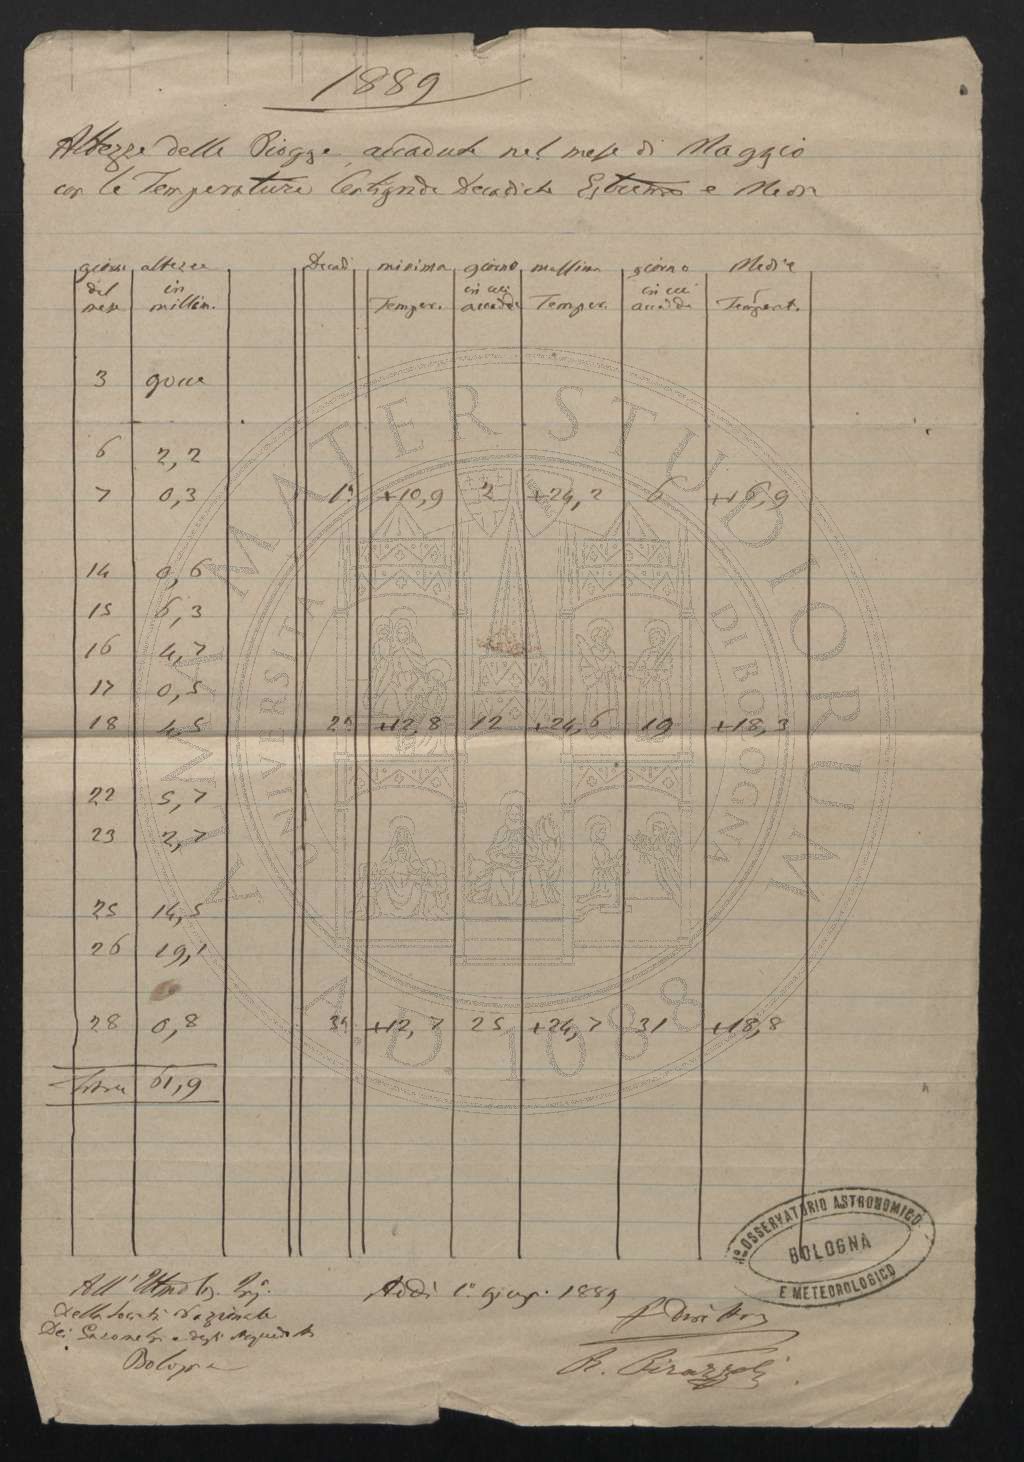 1889
Altezze delle Piogge accadute nel mese di Maggio
con le Temperature Centigrade Decadiche Estreme e Medie
giorni altezze Decadi minima giorno massima giorno Media
del in in cui in cui
mese millim. Temper. accadde Temper. accadde Temperat.
3 gocce
6 2,2
7 0,3 1ª +10,9 2 +24,2 6 +16,9
14 0,6
15 6,3
16 4,7
17 0,5
18 4,5 2ª +12,8 12 +24,6 19 +18,3
22 5,7
23 2,7
25 14,5
26 19,1
28 0,8 3ª +12,7 25 +24,7 31 +18,8
61,9
ALMA MATER STUDIORUM
UNIVERSITA DI BOLOGNA
A.D. 1088
All' Ing.
Della Società Nazionale
Dei Gazometri e degli Acquedotti
Bologna
Addì 1º giug. 1889
Il Direttore
R. Pirazzoli
Rº OSSERVATORIO ASTRONOMICO
BOLOGNA
E METEOROLOGICO